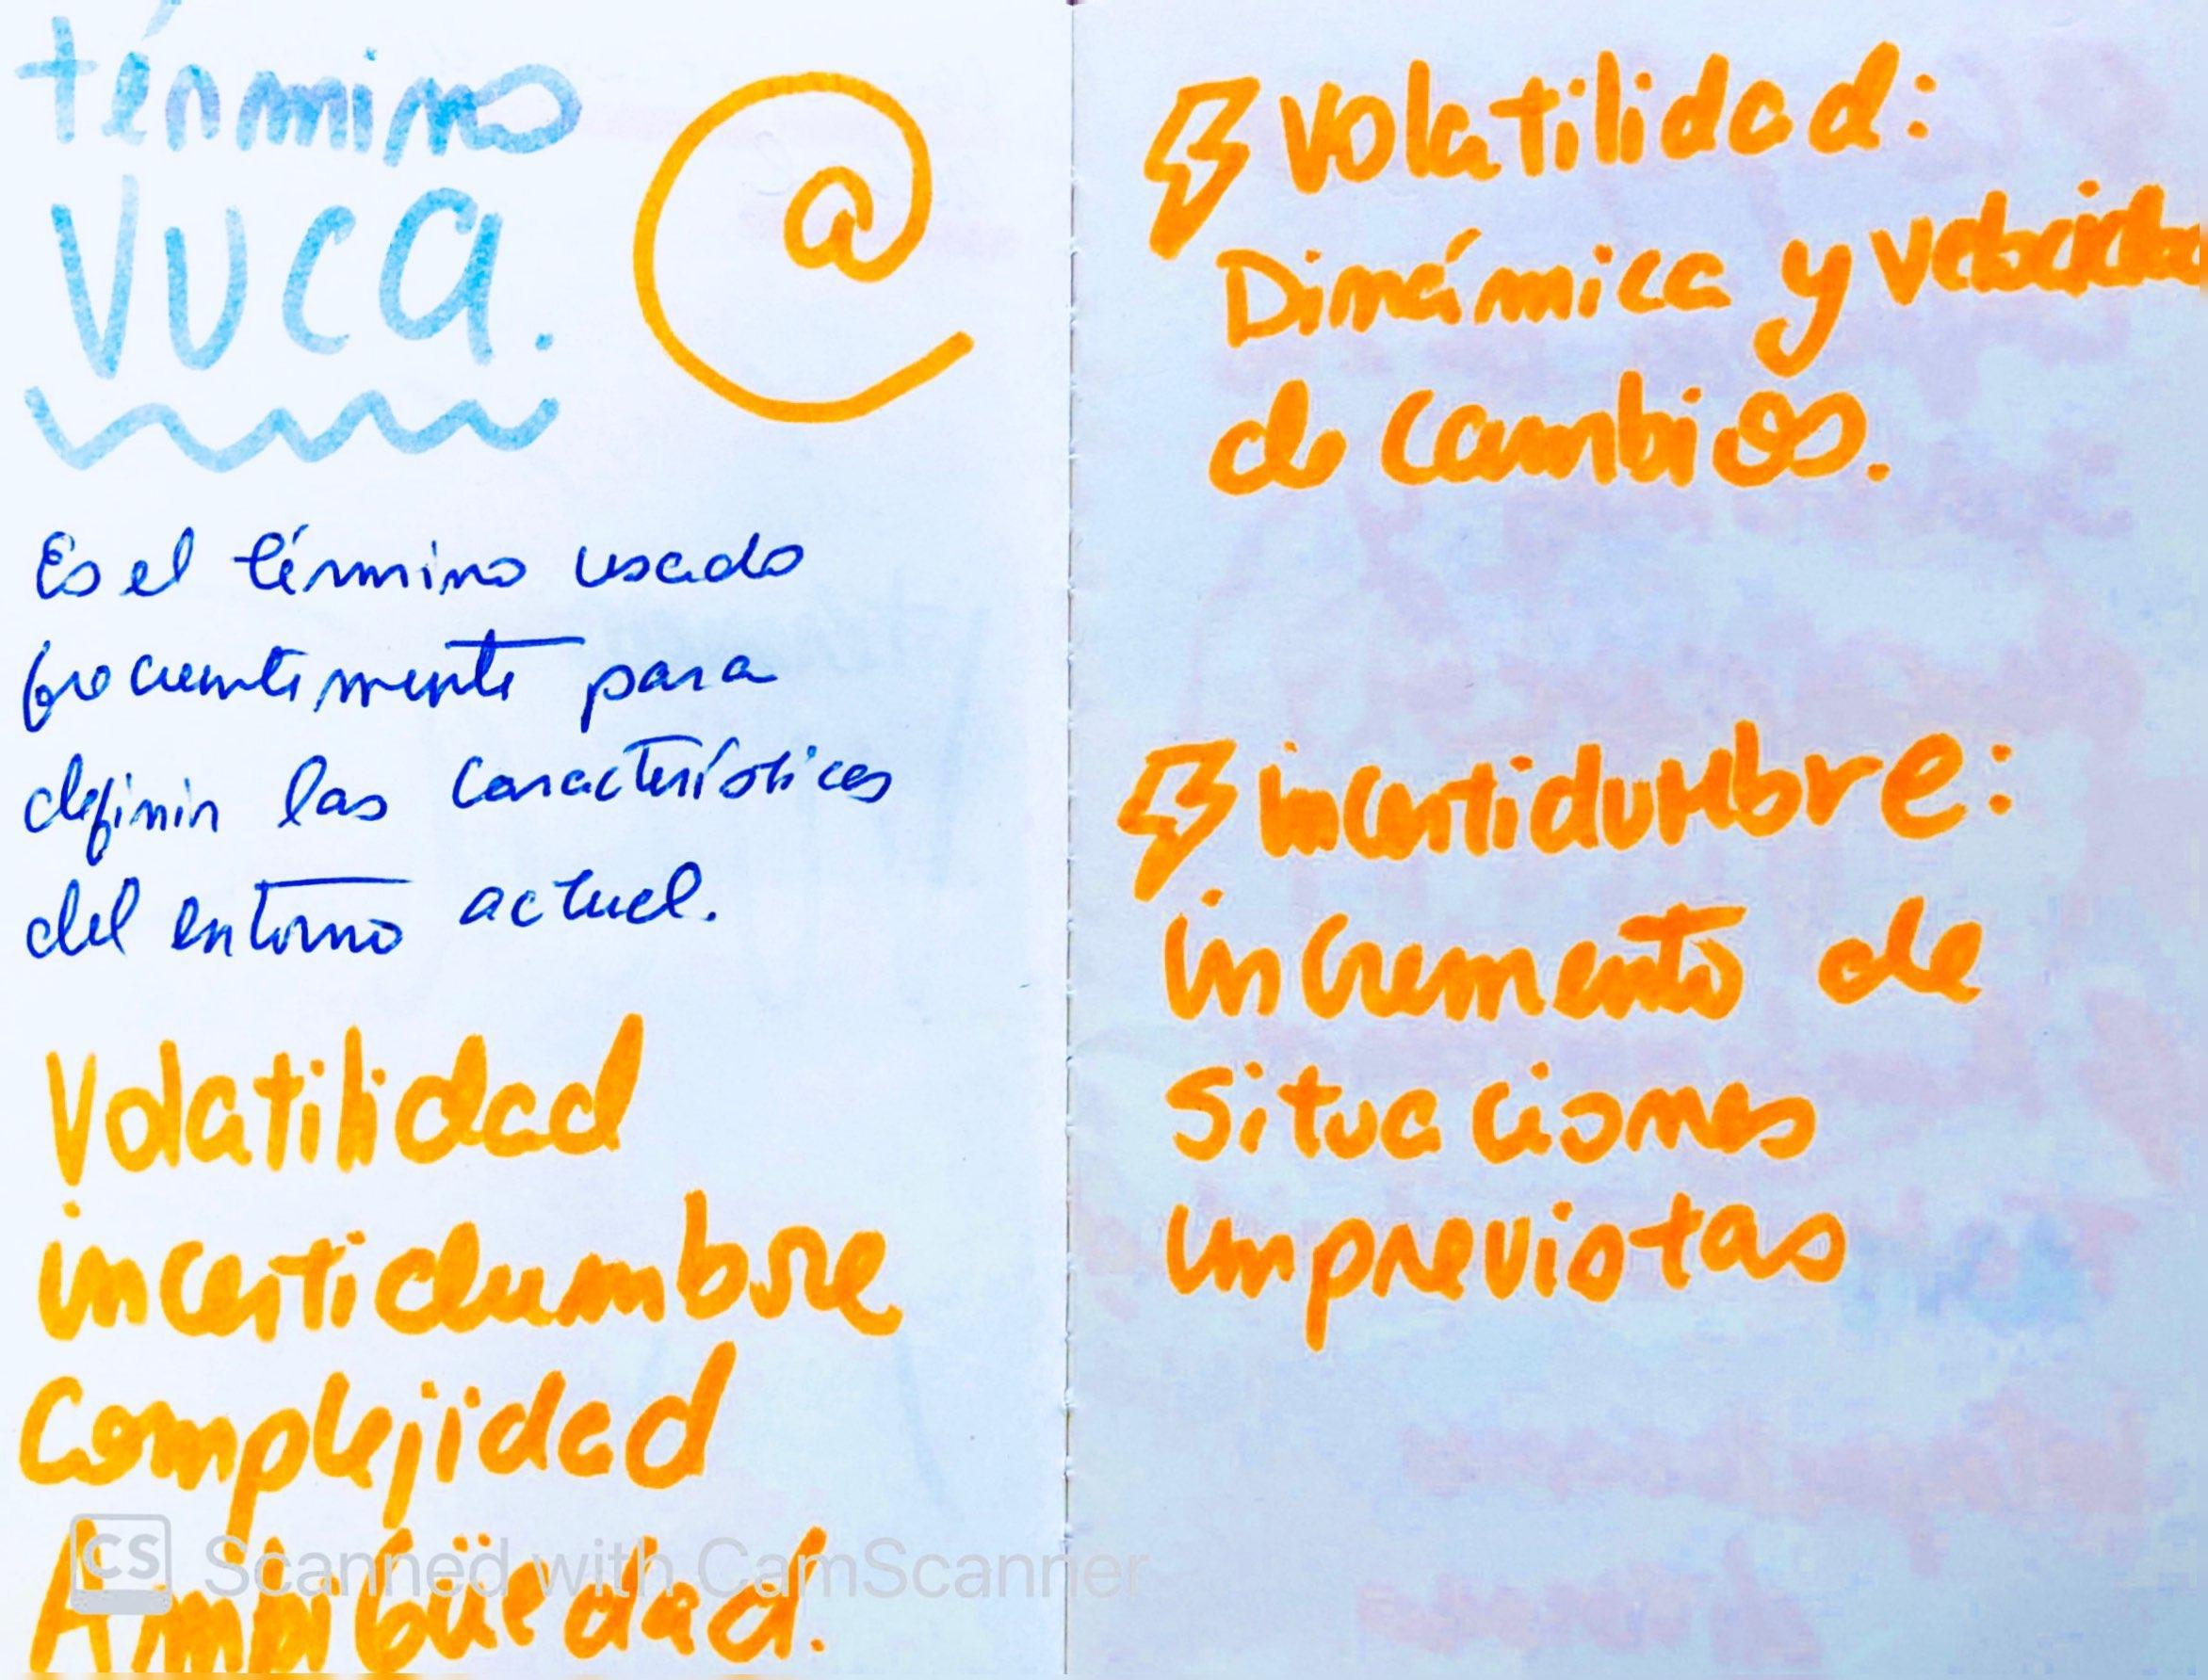 término
VUCA.
@
Es el término usado
frecuentemente para
definir las características
del entorno actual.
Volatilidad
incertidumbre
Complejidad
Ambigüedad.
CS Scanned with CamScanner
Volatilidad:
Dinámica y velocidad
de cambios.
incertidumbre:
incremento de
Situaciones
imprevistas